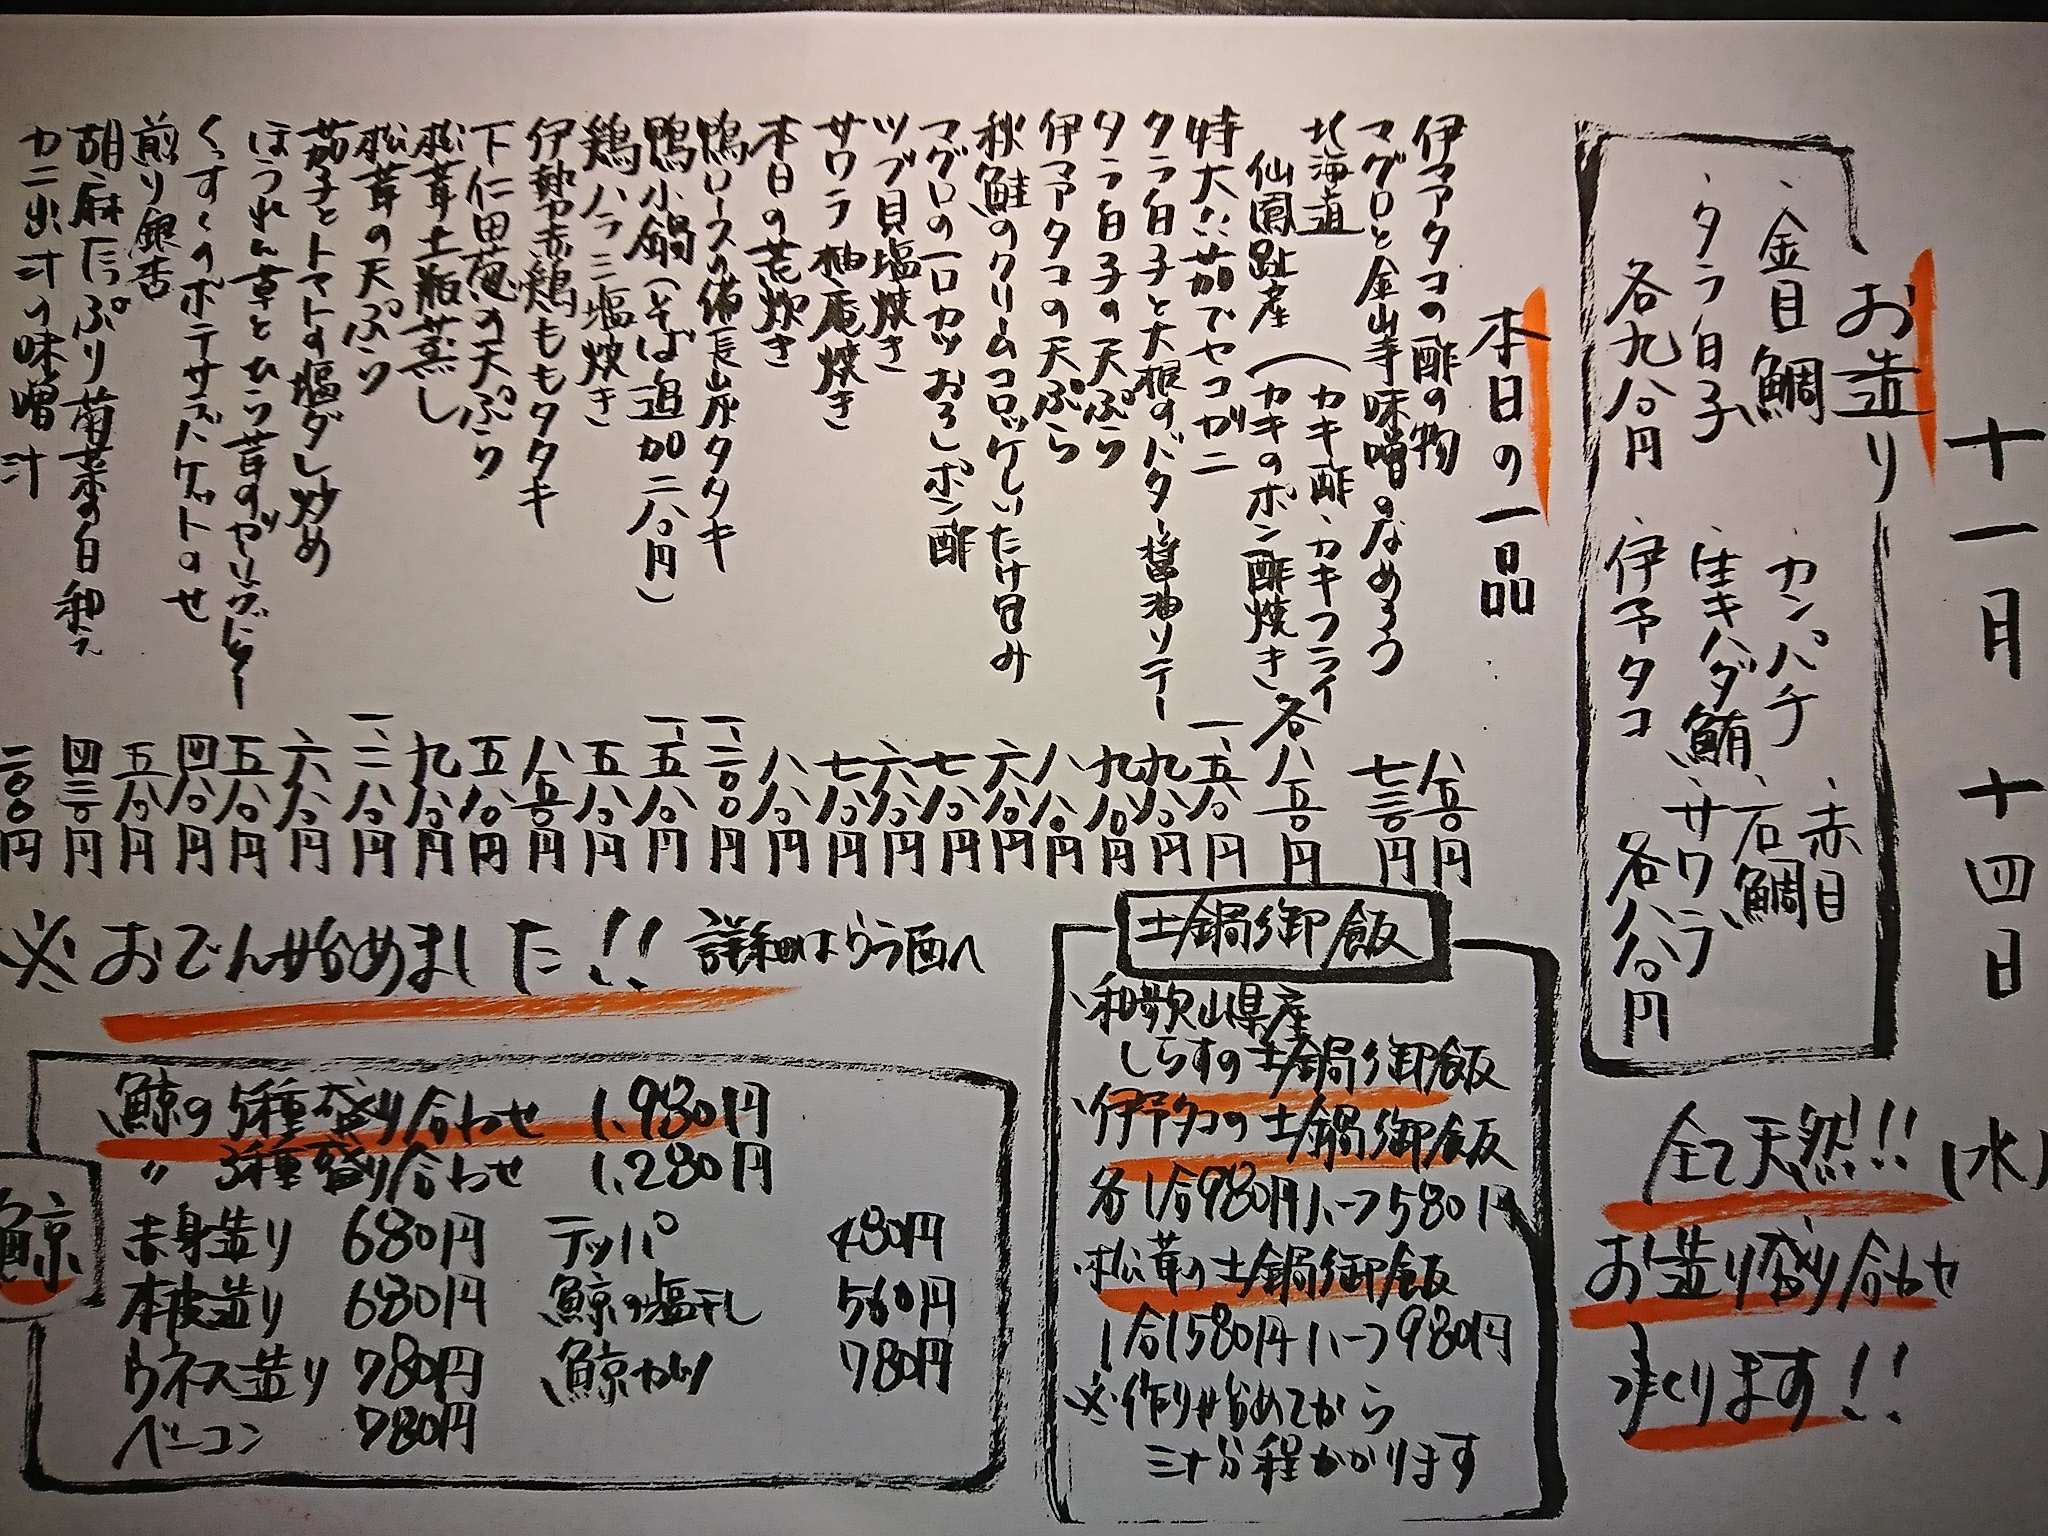 十一月十四日(水)
お造り
・金目鯛
・カンパチ
・赤目
・タラ白子
・生キハダ鮪
・石鯛
各九八〇円
・伊予タコ
・サワラ
各八八〇円
全て天然!!!
お造り盛り合わせ
承ります!!
本日の一品
伊予タコの酢の物 八五〇円
マグロと金山寺味噌のなめろう 七三〇円
北海道仙鳳趾産(カキ酢・カキフライ カキのポン酢焼き 各八五〇円
特大!!茹でセコガニ 一、五八〇円
タラ白子と大根のバター醤油ソテー 九八〇円
タラ白子の天ぷら 九八〇円
伊予タコの天ぷら 八八〇円
秋鮭のクリームコロッケしいたけ包み 六八〇円
マグロの一口カツおろしポン酢 七八〇円
ツブ貝塩焼き 六八〇円
サワラ柚庵焼き 七八〇円
本日の荒炊き 八八〇円
鴨ロースの備長炭タタキ 一、二〇〇円
鴨小鍋(そば追加二八〇円) 一、五八〇円
鶏ハラミ塩焼き 五八〇円
伊勢赤鶏ももタタキ 八五〇円
下仁田葱の天ぷら 五八〇円
松茸土瓶蒸し 九八〇円
松茸の天ぷら 一、二八〇円
茄子とトマトの塩ダレ炒め 六八〇円
ほうれん草とひら茸のガーリックバター 五八〇円
くずくのポテサラバケットのせ 四八〇円
煎り銀杏 五八〇円
胡麻たっぷり菊菜の白和え 四三〇円
カニ出汁の味噌汁 二〇〇円
土鍋御飯
・和歌山県産
しらすの土鍋御飯
・伊予タコの土鍋御飯
各1合980円ハーフ580円
・松茸の土鍋御飯
1合1580円ハーフ980円
※作り始めてから
三十分程かかります
※おでん始めました!! 詳細はうら面へ
鯨
鯨の5種盛り合わせ 1,980円
〃 3種盛り合わせ 1,280円
赤身造り 680円 テッパ 480円
本皮造り 680円 鯨の塩干し 560円
ウネス造り 780円 鯨カツ 780円
ベーコン 780円